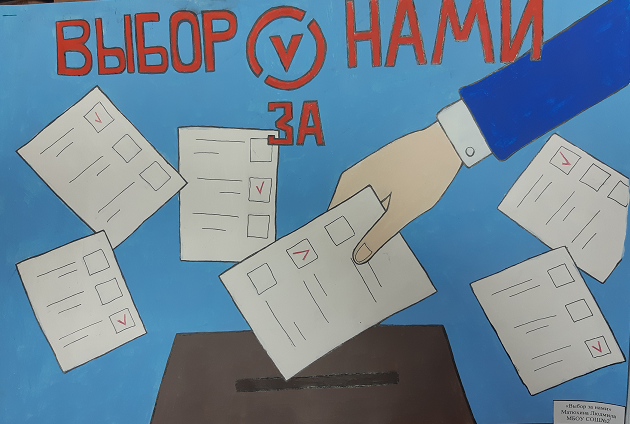 ВЫБОР НАМИ
ЗА
«Выбор за нами»
Матюхина Людмила
МБОУ СОШ№2